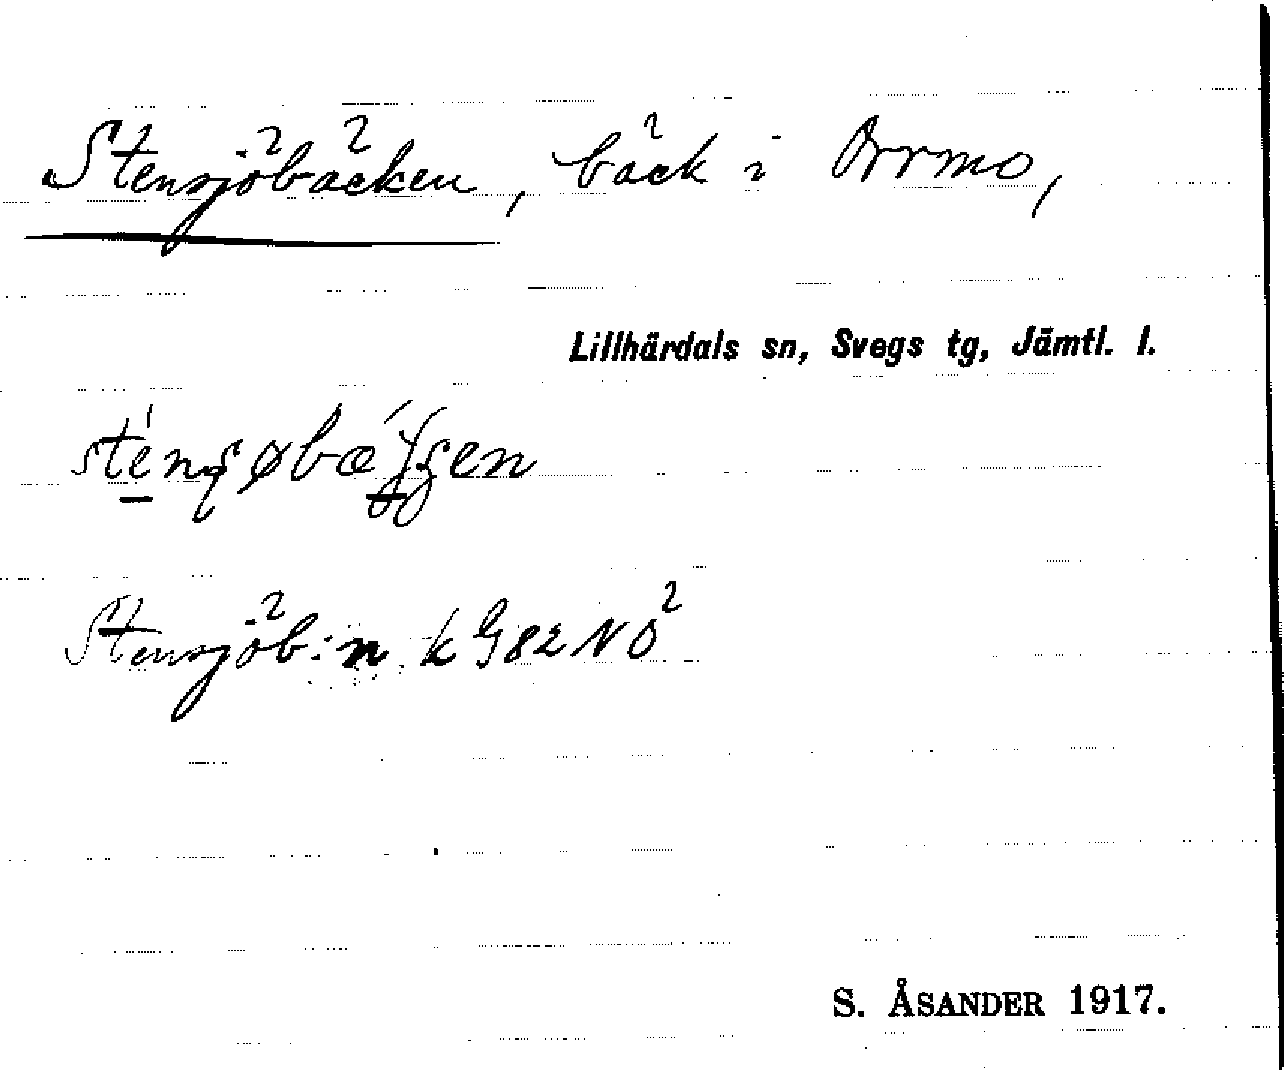 Stensjöbäcken, bäck i Orrmo,
Lillhärdals sn, Svegs tg, Jämtl. l.
Stensjöb:n k G 82 NO²
S. ÅSANDER 1917.